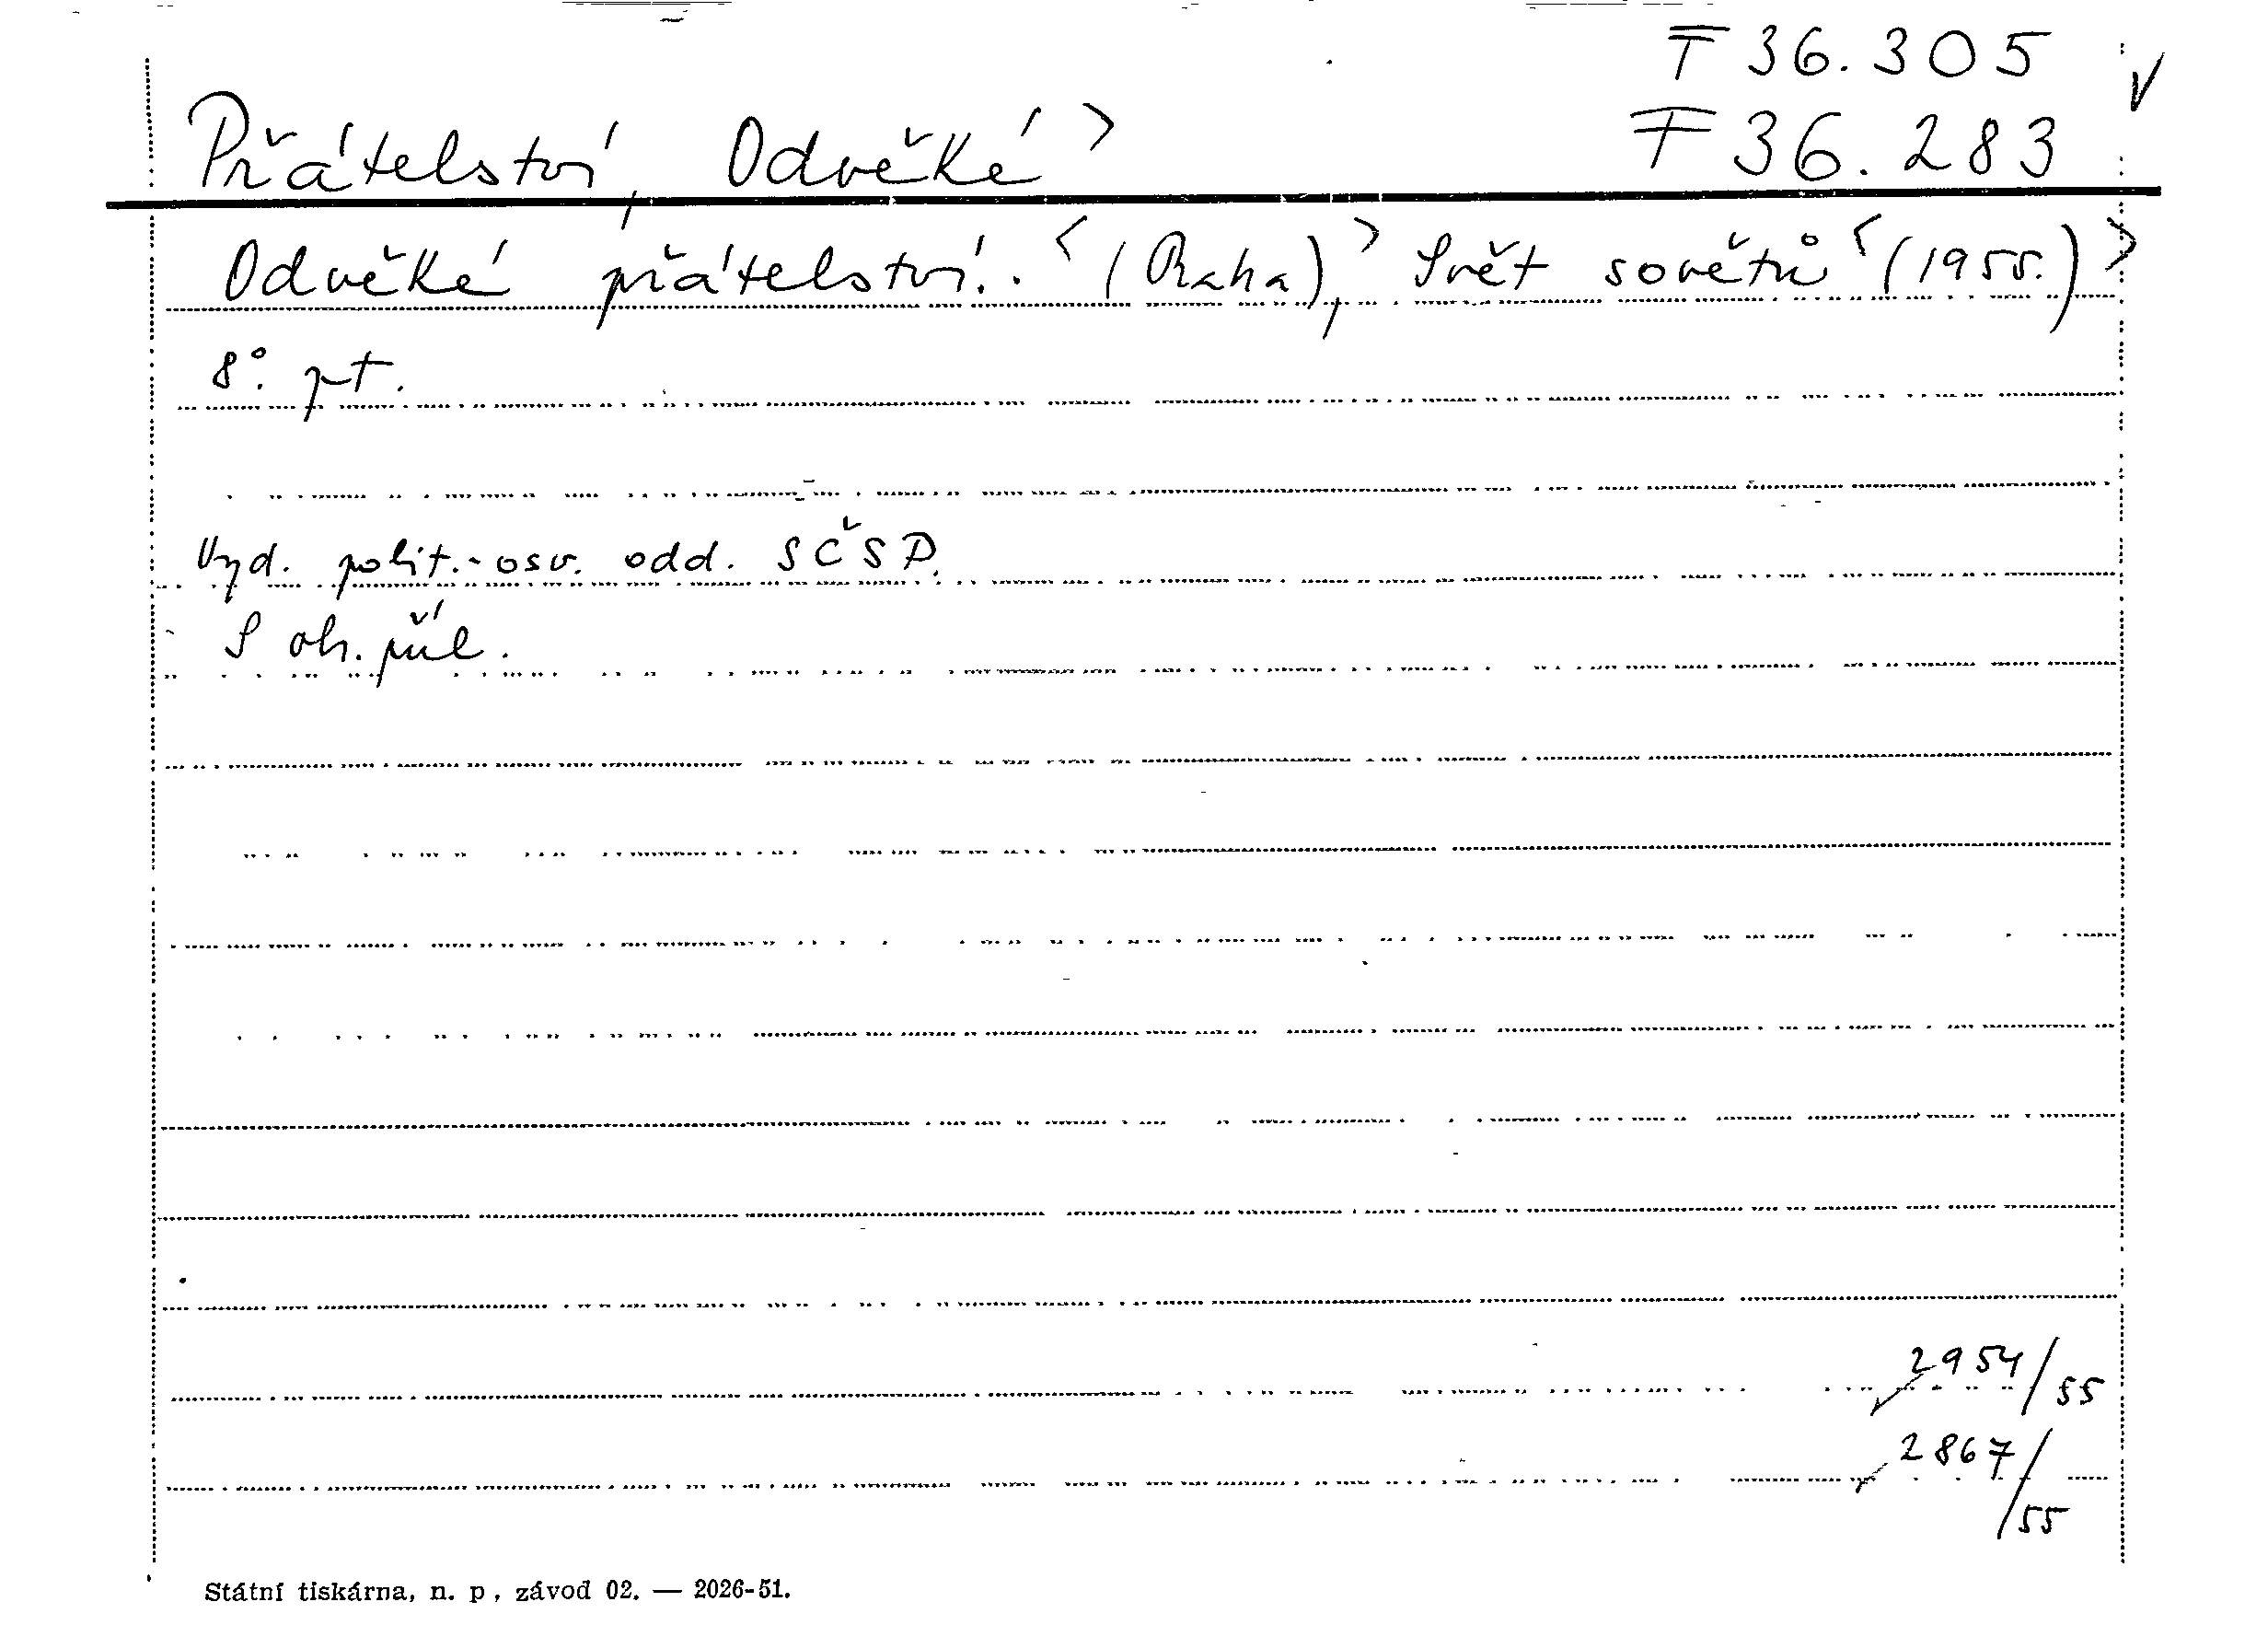 F 36.305
Přátelství, Odvěké >
F 36.283
Odvěké přátelství. < (Praha), > Svět sovětů < (1955.) >
8°. pt.
Vyd. polit.-osv. odd. SČSP.
S obr. příl.
2954/55
2867/55
Státní tiskárna, n. p., závod 02. — 2026-51.